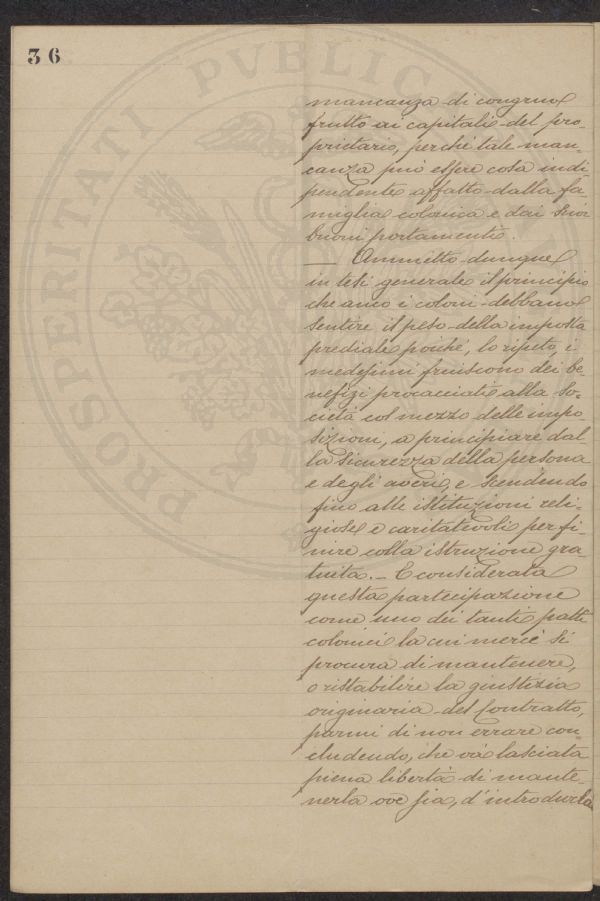 36
mancanza di congruo
frutto ai capitali del pro-
prietario, perché tale man-
canza può essere cosa indi-
pendente affatto dalla fa
miglia colonica e dai suoi
buoni portamenti.
— Ammetto dunque
in tesi generale il principio
che anco i coloni debbano
sentire il peso della imposta
prediale poiché, lo ripeto, i
medesimi fruiscono dei be-
nefizi procacciati alla so-
cietà col mezzo delle impo
sizioni, a principiare dal
la sicurezza della persona
e degli averi, e scendendo
fino alle istituzioni reli-
giose e caritatevoli per fi-
nire colla istruzione gra-
tuita. — E considerata
questa partecipazione
come uno dei tanti patti
colonici la cui mercè si
procura di mantenere,
o ristabilire la giustizia
originaria del contratto,
parmi di non errare con-
cludendo, che và lasciata
piena libertà di mante-
nerla ove sia, d'introdurla
PROSPERITATI PVBLICAE